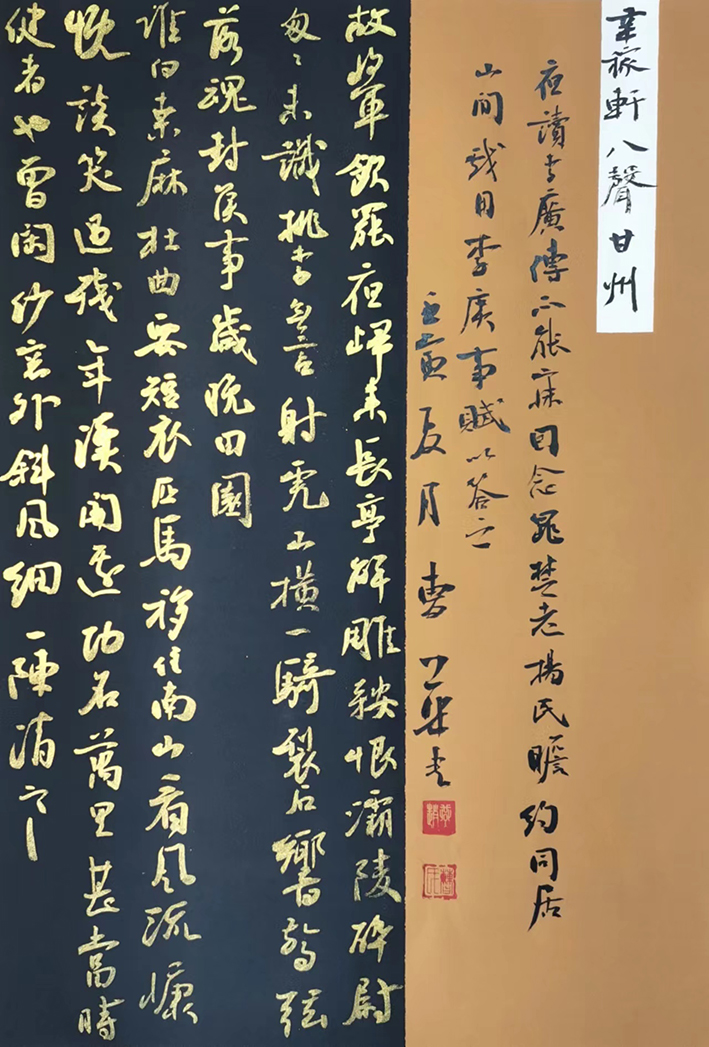 辛稼軒八聲甘州
夜讀李廣傳不能寐因念晁楚老楊民瞻約同居
山間戲用李廣事賦以答之
壬寅夏月曹
故將軍飲罷夜歸來長亭解雕鞍恨灞陵醉尉
匆々未識桃李無言射虎山橫一騎裂石響驚弦
落魂封侯事歲晚田園
誰向桑麻杜曲要短衣匹馬移住南山看風流慷
慨談笑過殘年漢開邊功名萬里甚當時
健者也曾閑紗窗外斜風細一陣清寒